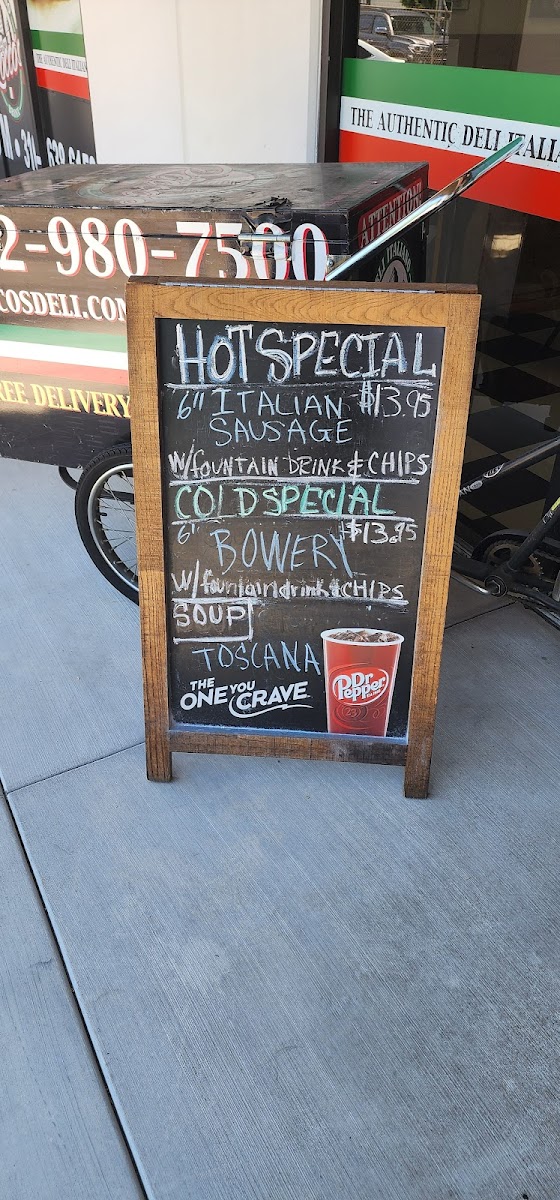 THE AUTHENTIC DELI ITALIA
THE AUTHENTIC DELI ITALIA
2-980-7500
COSDELI.COM
REE DELIVERY
ATTENTION!
HOT SPECIAL
6" ITALIAN $13.95
SAUSAGE
W/FOUNTAIN DRINK & CHIPS
COLD SPECIAL
6" $13.95
BOWERY
W/fountain drink & CHIPS
SOUP
TOSCANA
THE
ONE YOU
CRAVE
Dr
Pepper
23